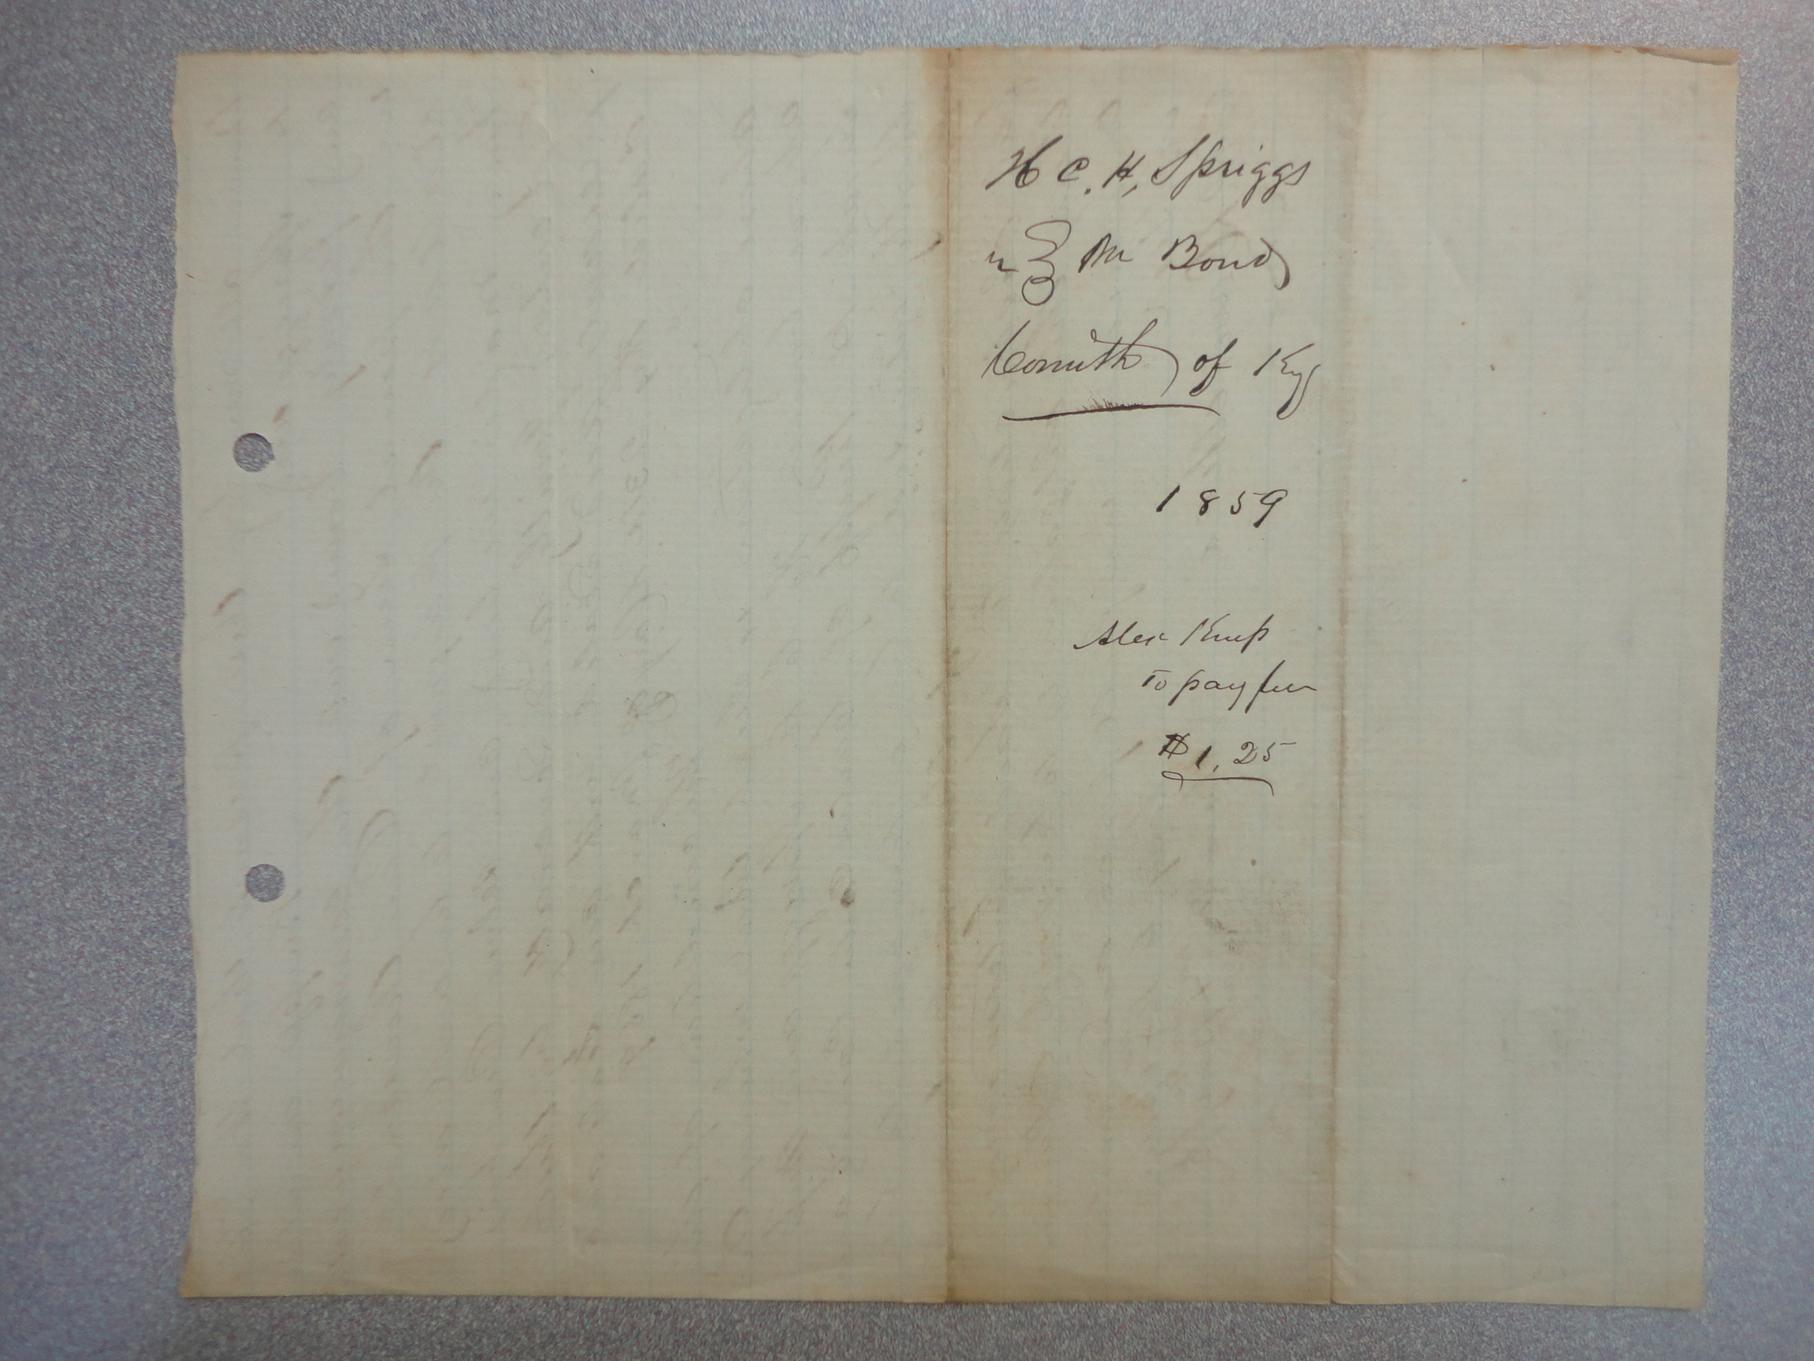 H C. H, Spriggs
M Bond
Comwth of Ky
1859
Alex Kemp
To pay fee
$1.25